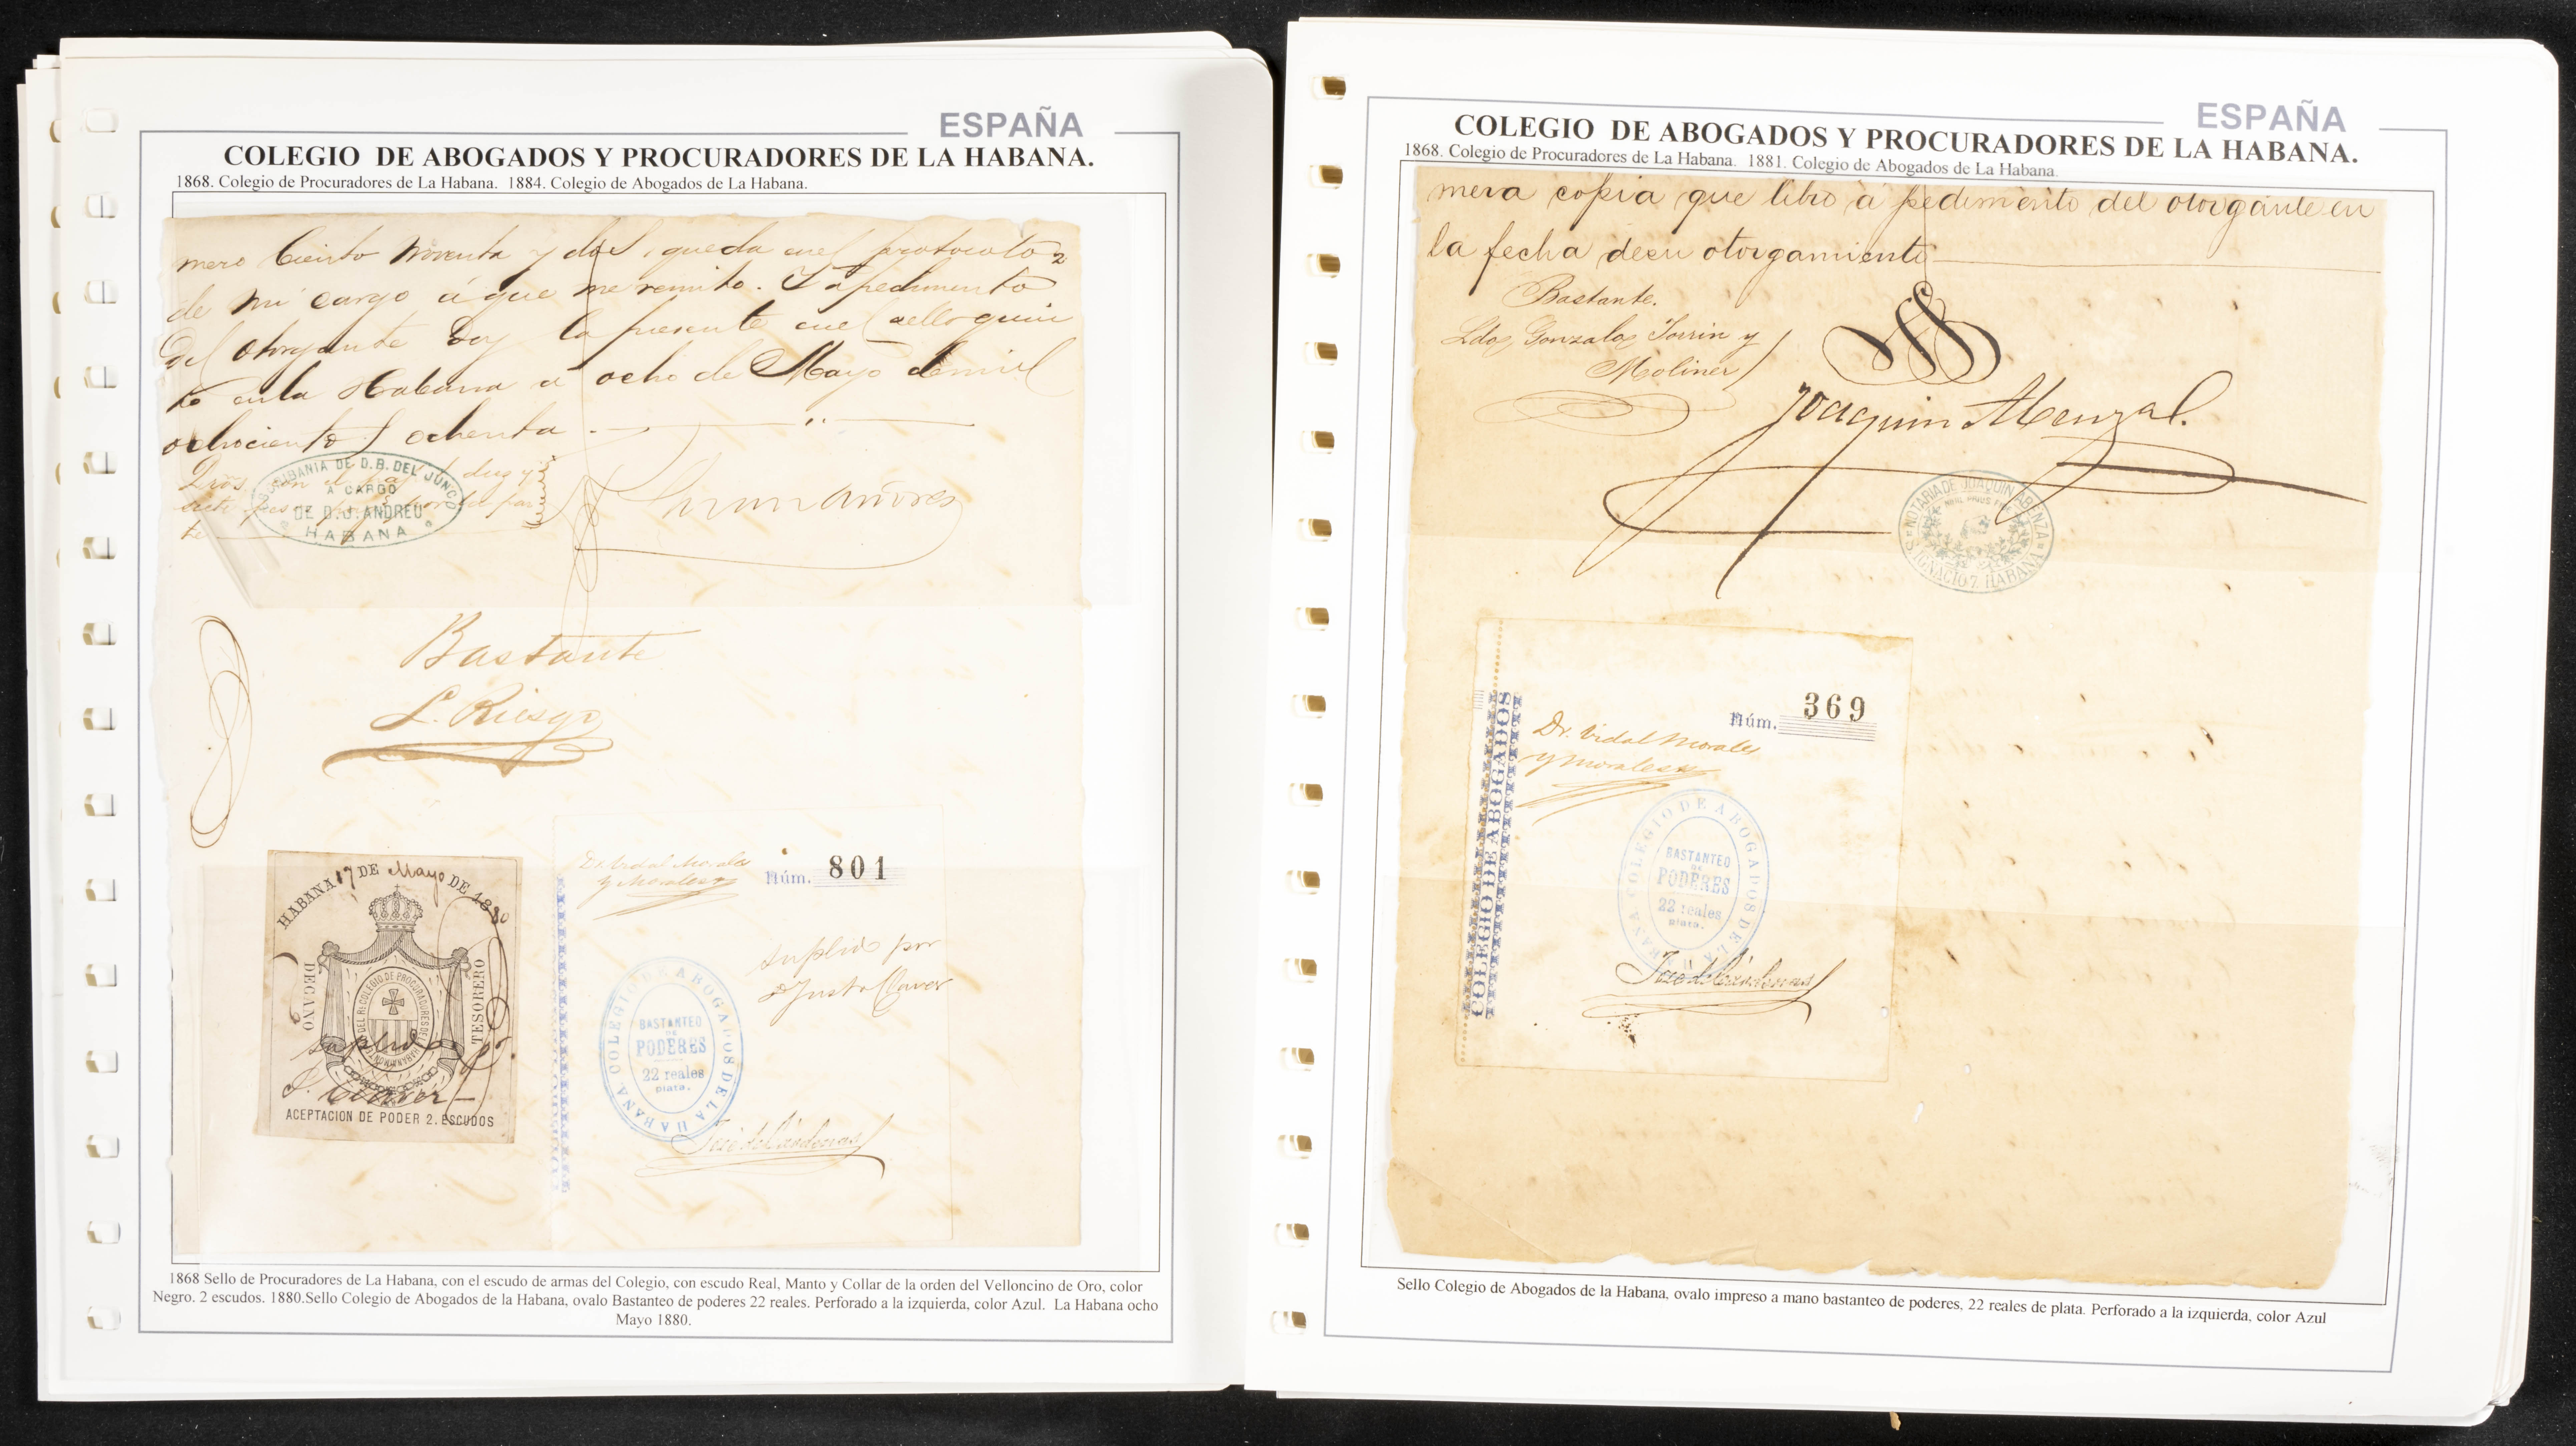 ESPAÑA
COLEGIO DE ABOGADOS Y PROCURADORES DE LA HABANA.
1868. Colegio de Procuradores de La Habana. 1884. Colegio de Abogados de La Habana.
mero Ciento noventa y dos, queda en el protocolo
de mi cargo á que me remito. Y a pedimento
del otorgante doy la presente en el sello quin
to en la Habana a ocho de Mayo de mil
ochociento y ochenta
ESCRIBANIA DE D.B. DEL JUNCO
A CARGO
DE D.J. ANDREU
HABANA
Bastante
L. Riesgo
HABANA 17 DE Mayo DE 1880
DECANO
TESORERO
DEL Rl COLEGIO DE PROCURADORES DE
suplido pr.
J. Claver
ACEPTACION DE PODER 2. ESCUDOS
Dr. Vidal Morales
y Morales
Núm. 801
suplido por
Justo Claver
COLEGIO DE ABOGADOS DE LA HABANA
BASTANTEO
DE
PODERES
22 reales
plata.
José de Cárdenas
1868 Sello de Procuradores de La Habana, con el escudo de armas del Colegio, con escudo Real, Manto y Collar de la orden del Velloncino de Oro, color
Negro. 2 escudos. 1880.Sello Colegio de Abogados de la Habana, ovalo Bastanteo de poderes 22 reales. Perforado a la izquierda, color Azul. La Habana ocho
Mayo 1880.
ESPAÑA
COLEGIO DE ABOGADOS Y PROCURADORES DE LA HABANA.
1868. Colegio de Procuradores de La Habana. 1881. Colegio de Abogados de La Habana.
mera copia que libro a pedimento del otorgante en
la fecha de su otorgamiento
Bastante.
Ldo. Gonzalo Jorrin y
Moliner
Joaquin Abenzal.
NOTARIA DE JOAQUIN ABENZA
S. IGNACIO 7. HABANA
COLEGIO DE ABOGADOS
Núm. 369
Dr. Vidal Morales
y Morales
COLEGIO DE ABOGADOS DE LA HABANA
BASTANTEO
DE
PODERES
22 reales
plata.
José de Cárdenas
Sello Colegio de Abogados de la Habana, ovalo impreso a mano bastanteo de poderes, 22 reales de plata. Perforado a la izquierda, color Azul